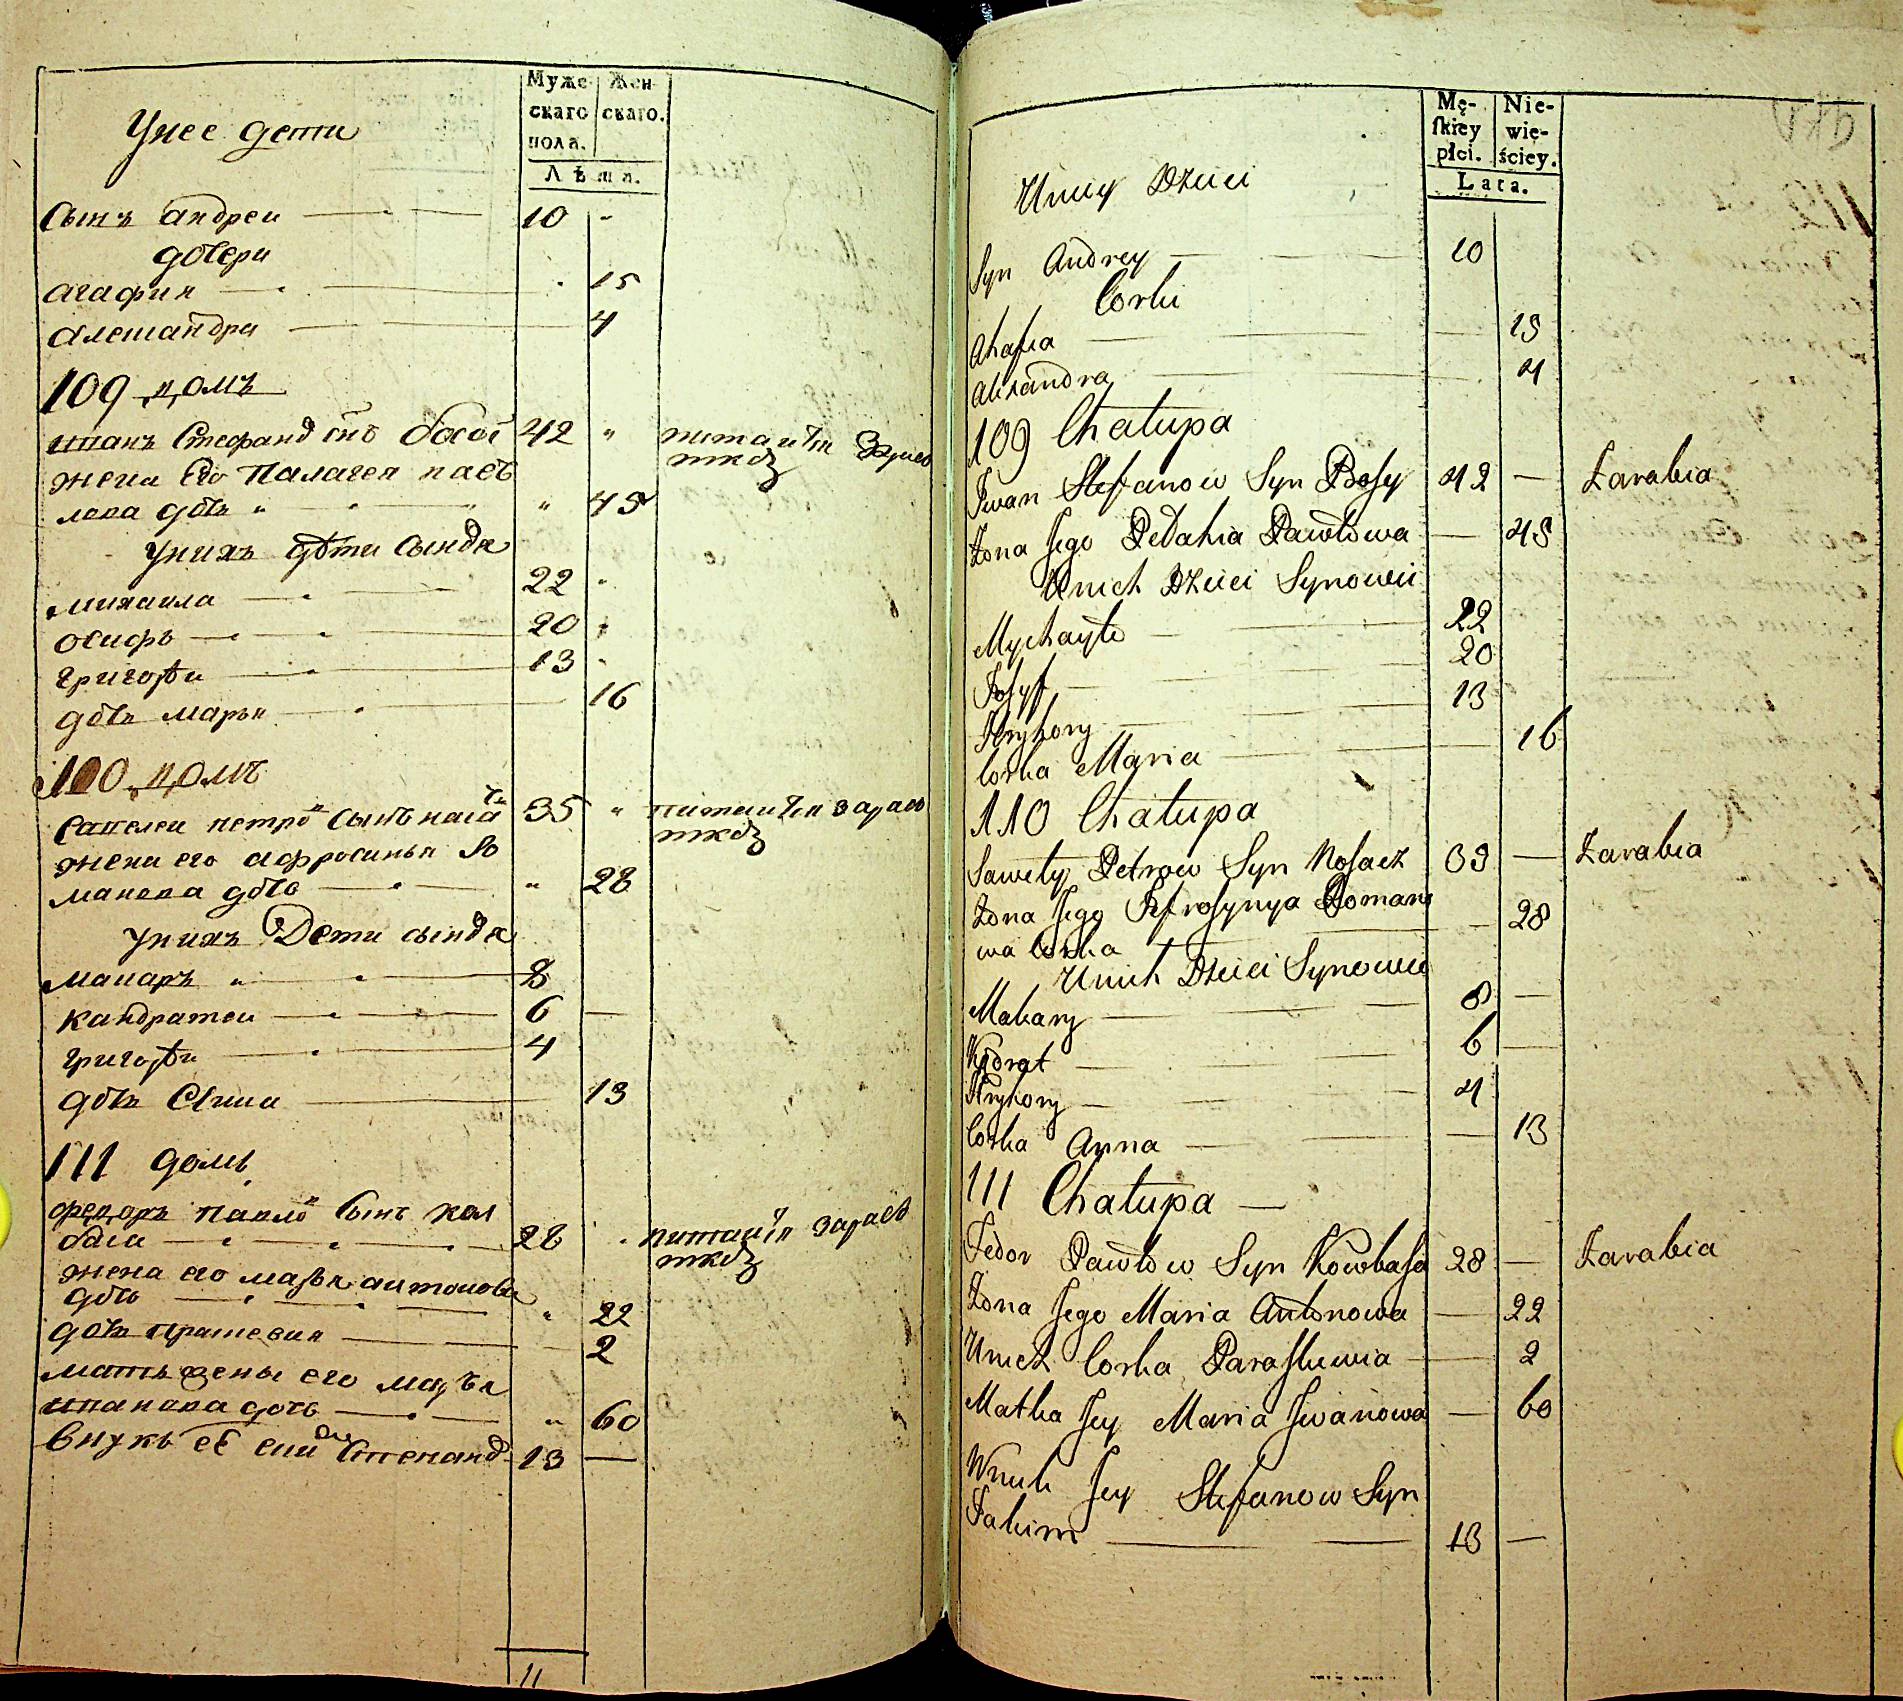 Муже- Жен-
скаго скаго.
пола.
Лѣта.
Унее дети
Сынъ андреи 10 -
дочери
агафия 15
алешандра 4
109 домъ
иванъ Стефанд снъ босои 42 " питаитя зарабо
ткоӡ
жена его Палагея павъ
лова дочь " 45
Унихъ дѣти сындя
михаила 22
осифъ 20
григорѣи 13
дочь марья 16
110 домъ
савелеи петро сынъ носачъ 35 " питаитя зарабо
ткоӡ
жена его афросинья Ро
манова дочь " 28
Унихъ Дети сындя
макаръ " 8
кандратеи 6 —
григорѣи 4
дочь Анна 13
111 домъ
федоръ павло сынъ кол
баса 28 питаитя зарабо
ткоӡ
жена его марья антонова
дочь " 22
дочь прашевия 2
мать жены его марья
иванова дочь " 60
внукъ её Степанд 13 —
11
Mę- Nie-
skiey wie-
płci. ściey.
Lata.
Uniey Dzieci
Syn Andrey 10
Corki
Ahafia 15
Alexandra 4
109 Chałupa
Jwan Stefanow Syn Bosy 42 — Zarabia
Zona Jego Pelahia Pawłowa — 45
Unich Dzieci Synowie
Mychayło 22
Josyf 20
Hryhory 13
Corka Maria 16
110 Chałupa
Sawely Petrow Syn Nosacz 35 — Zarabia
Zona Jego Jefrosynya Romano
wa Corka 28
Unich Dzieci Synowie
Makary 8 —
Kądrat 6 —
Hryhory 4
Corka Anna — 13
111 Chałupa —
Fedor Pawłow Syn Kowbasa 28 — Zarabia
Zona Jego Maria Antonowa — 22
Unich Corka Paraskiewia — 2
Matka Jey Maria Jwanowa — 60
Wnuk Jey Stefanow Syn
Jakim 13 —